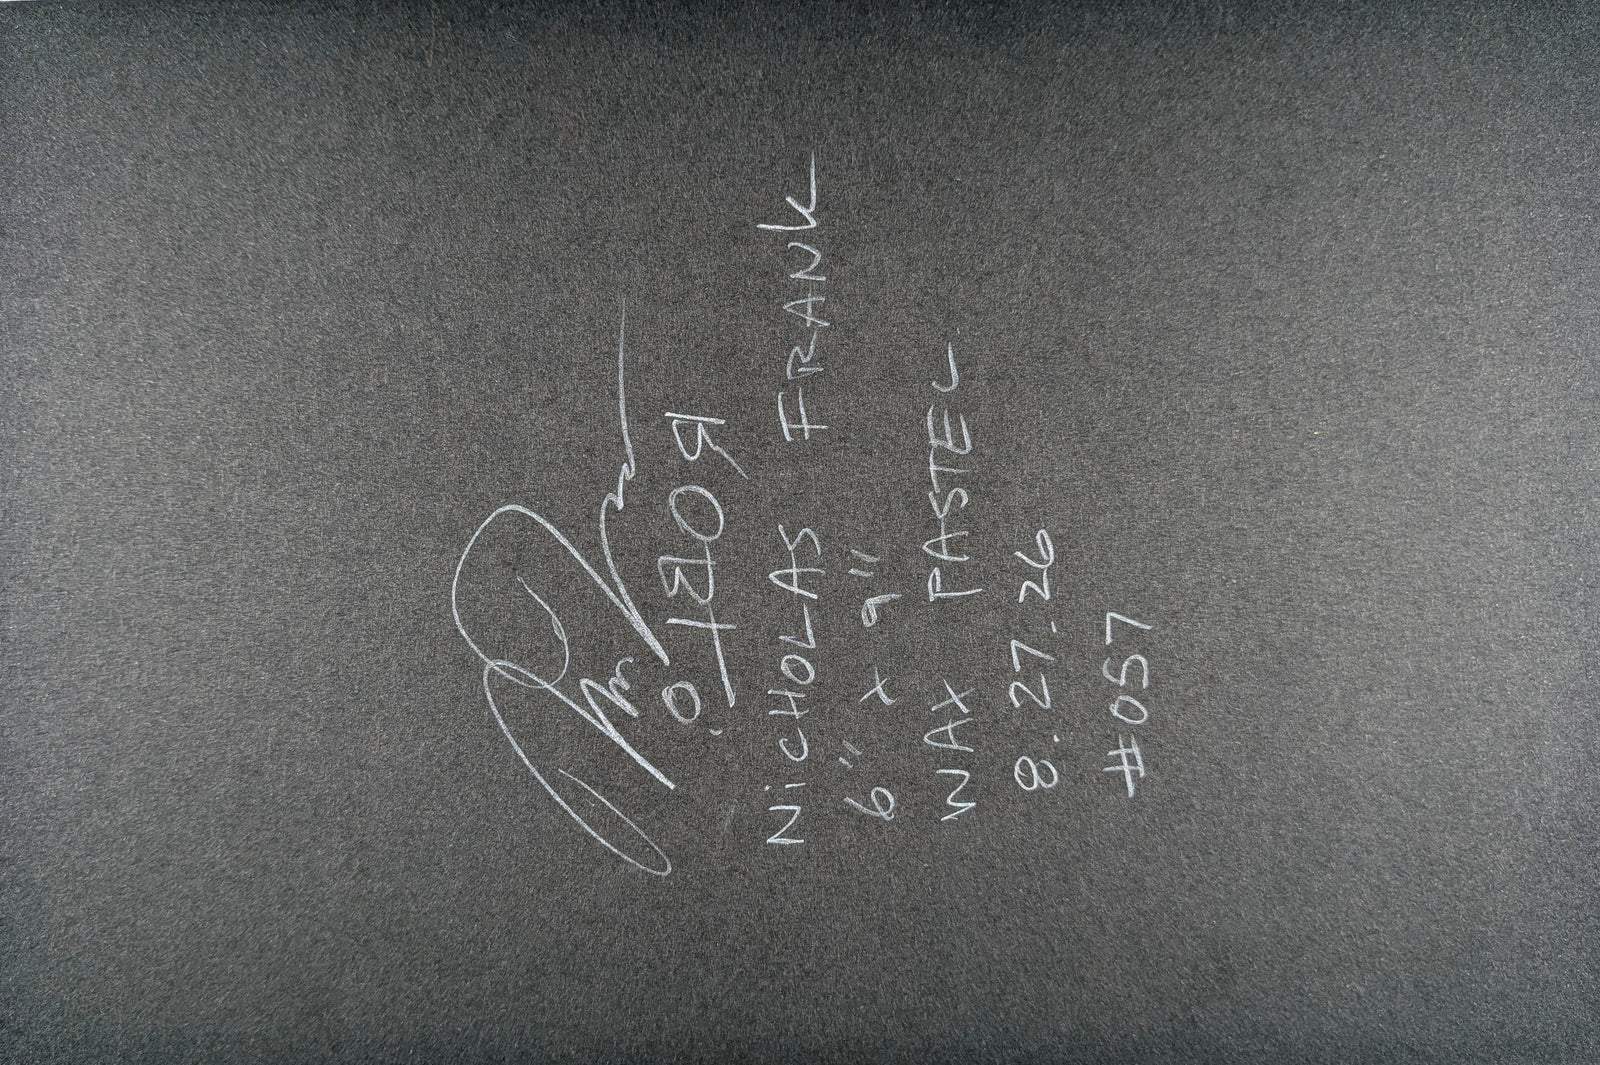 NiCHOLAS FRANK
6" x 9"
WAX PASTEL
8.27.26
#057